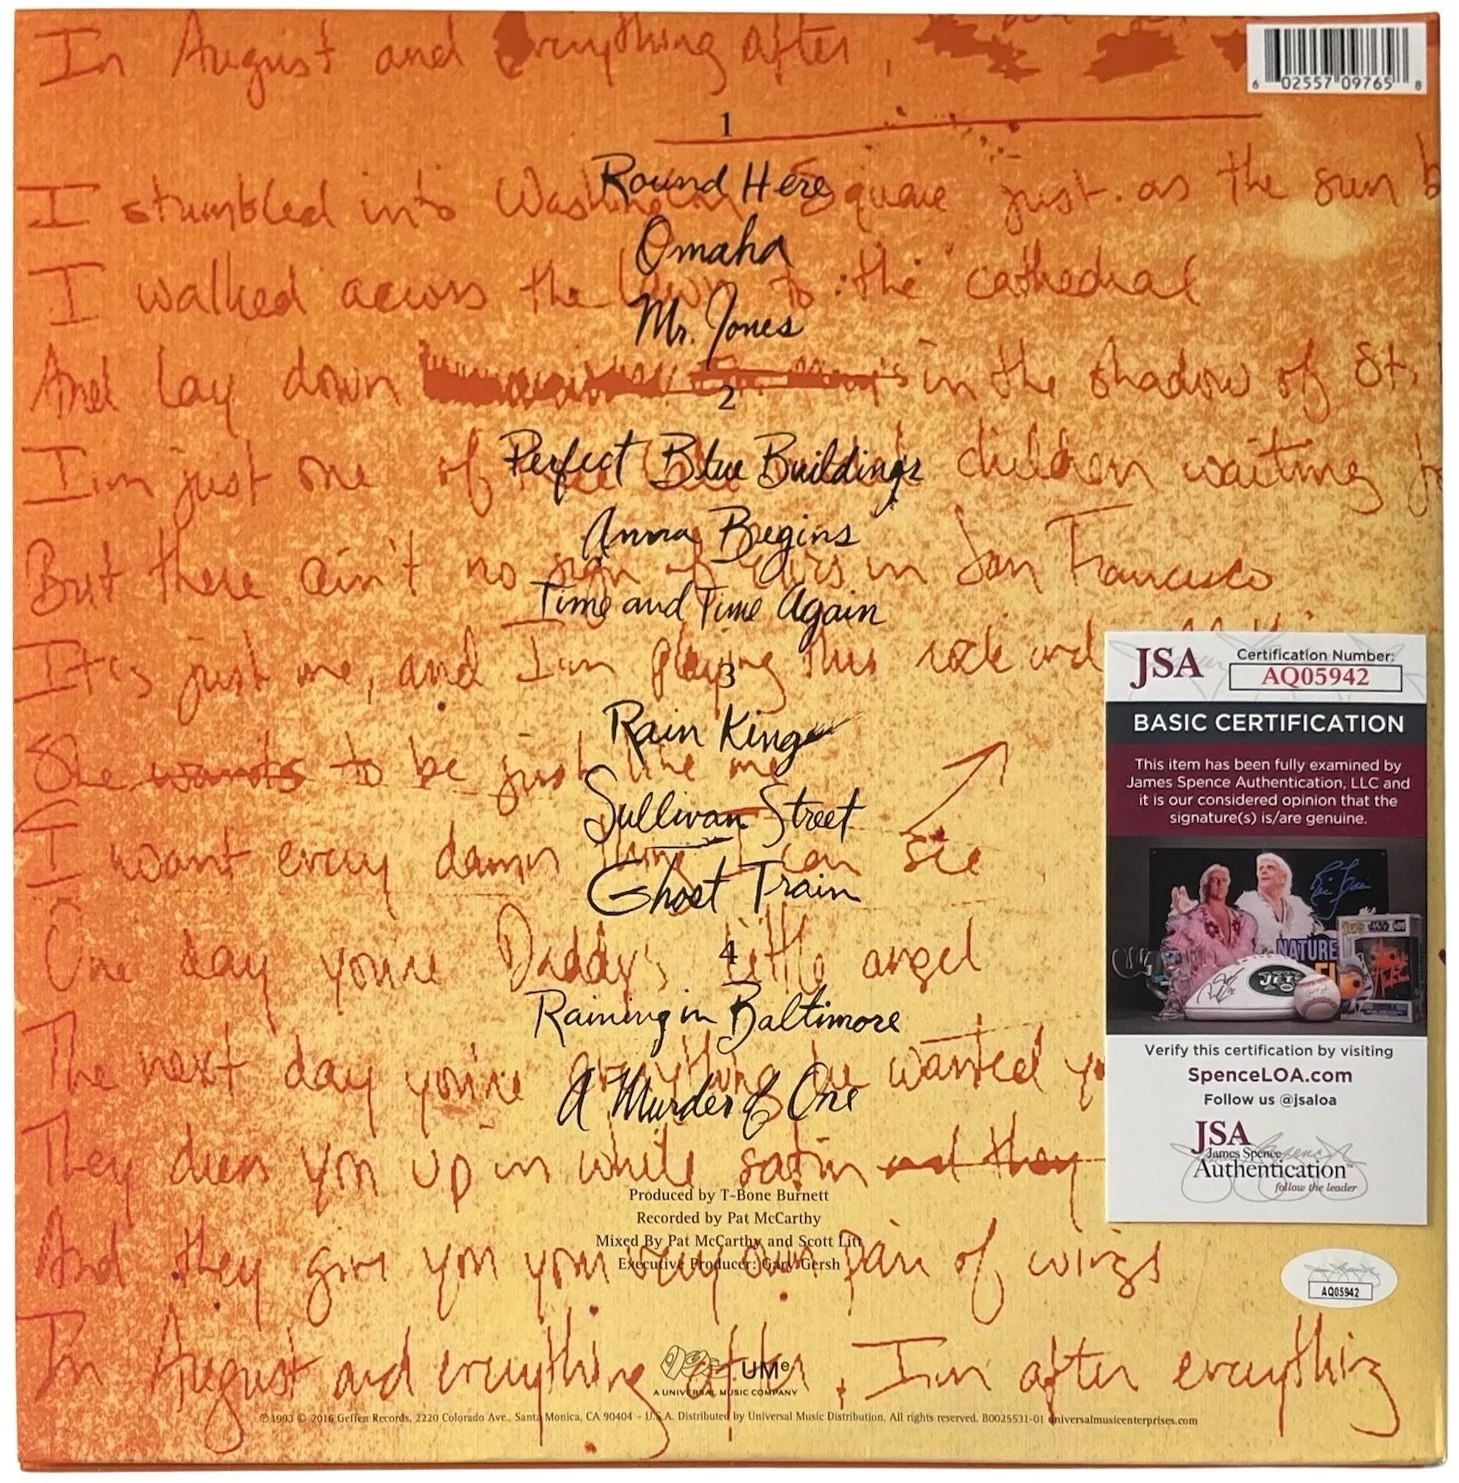 In August and everything after,
6 02557 09765 8
1
Round Here
I stumbled into Washington Square just as the sun b
Omaha
I walked across the lawn to the cathedral
Mr. Jones
And lay down in the shadow of St.
2
Perfect Blue Buildings
I'm just one of these late children waiting fo
Anna Begins
But there ain't no sign of in San Francisco
Time and Time Again
It's just me, and I'm playing this rock and
3
Rain King
She wants to be just like me
Sullivan Street
I want every damn thing I can see
Ghost Train
One day you're Daddy's little angel
4
Raining in Baltimore
The next day you're everything he wanted yo
A Murder of One
They dress you up in white satin and they
Produced by T-Bone Burnett
Recorded by Pat McCarthy
Mixed By Pat McCarthy and Scott Litt
And they give you your very own pair of wings
Executive Producer: Gary Gersh
In August and everything after, I'm after everything
UMe
A UNIVERSAL MUSIC COMPANY
℗ 1993 © 2016 Geffen Records, 2220 Colorado Ave., Santa Monica, CA 90404 - U.S.A. Distributed by Universal Music Distribution. All rights reserved. B0025531-01 universalmusicenterprises.com
JSA
Certification Number:
AQ05942
BASIC CERTIFICATION
This item has been fully examined by
James Spence Authentication, LLC and
it is our considered opinion that the
signature(s) is/are genuine.
NATURE
JETS
Verify this certification by visiting
SpenceLOA.com
Follow us @jsaloa
JSA
James Spence
Authentication™
follow the leader
AQ05942